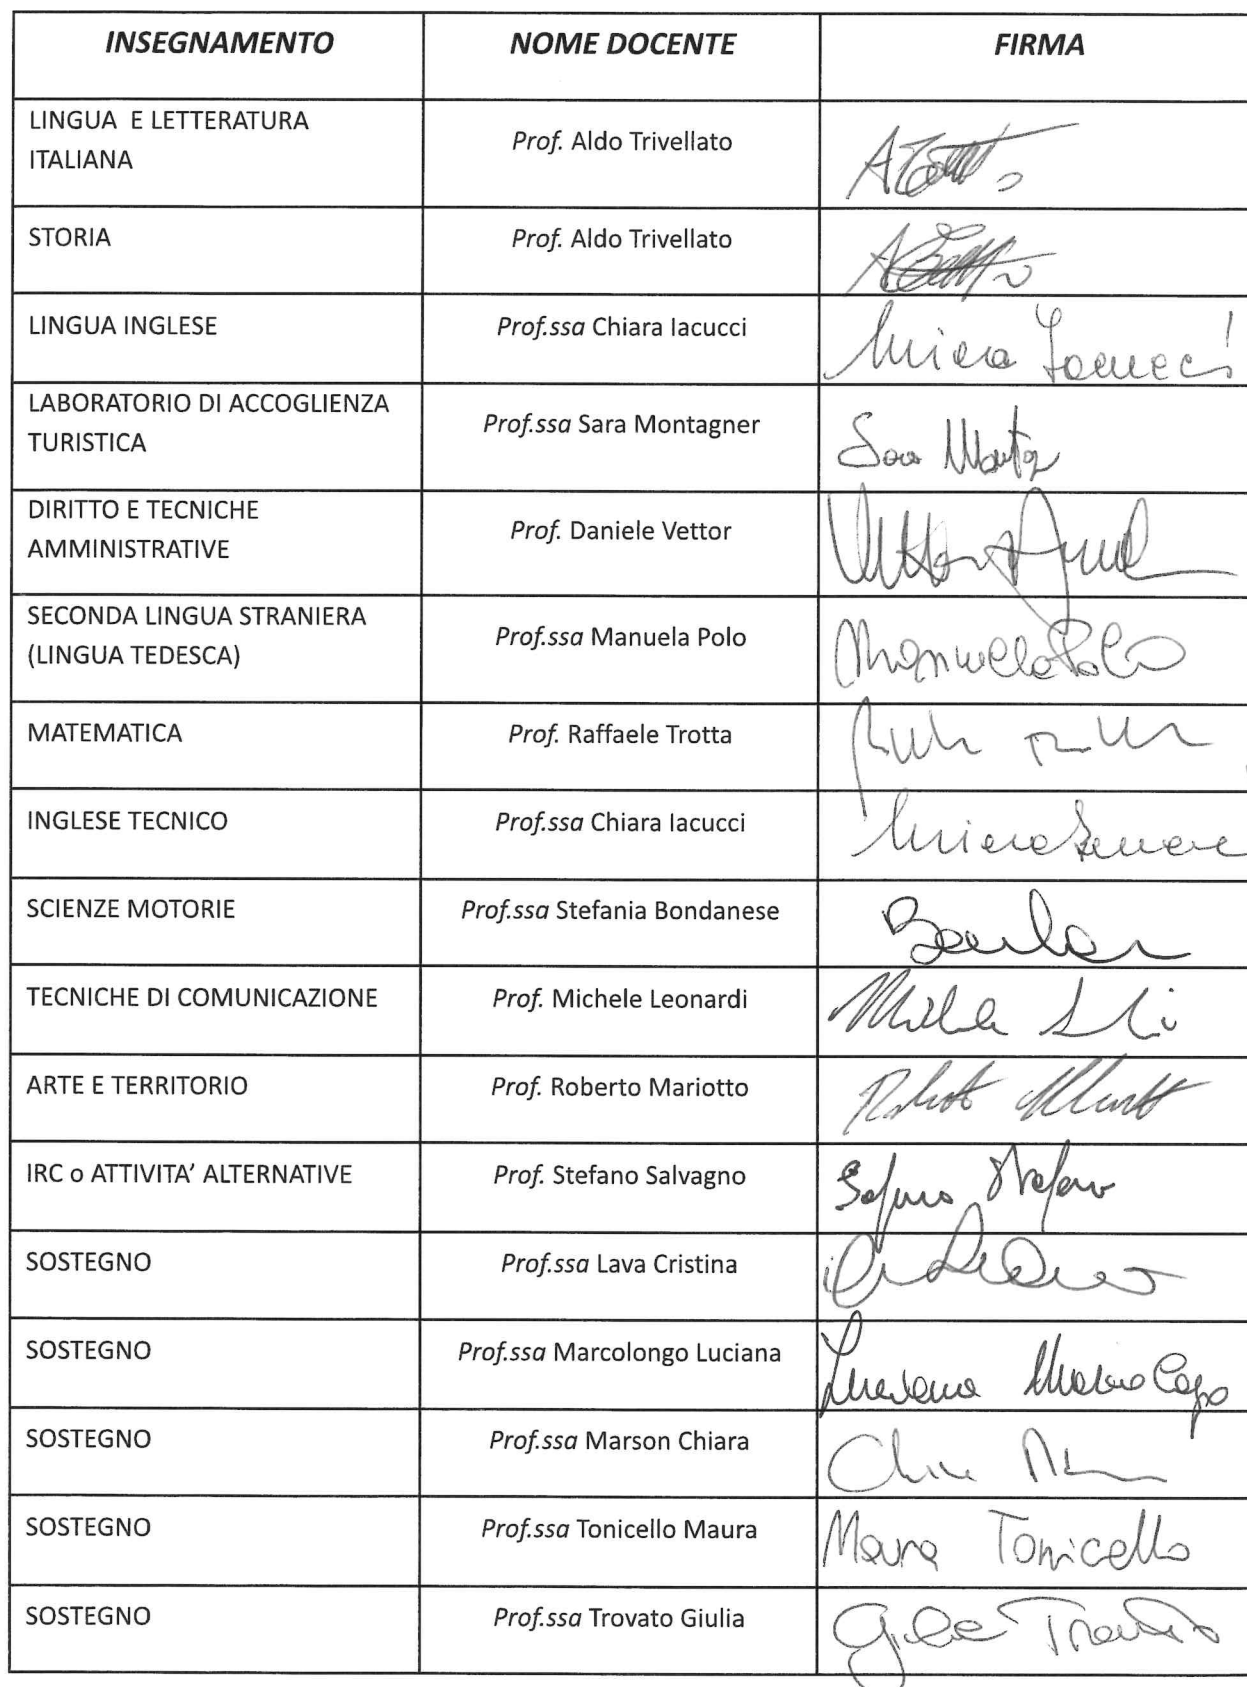 INSEGNAMENTO NOME DOCENTE FIRMA
LINGUA E LETTERATURA
ITALIANA
Prof. Aldo Trivellato
STORIA Prof. Aldo Trivellato
LINGUA INGLESE Prof.ssa Chiara Iacucci Chiara Iacucci
LABORATORIO DI ACCOGLIENZA
TURISTICA
Prof.ssa Sara Montagner
DIRITTO E TECNICHE
AMMINISTRATIVE
Prof. Daniele Vettor
SECONDA LINGUA STRANIERA
(LINGUA TEDESCA)
Prof.ssa Manuela Polo Manuela Polo
MATEMATICA Prof. Raffaele Trotta
INGLESE TECNICO Prof.ssa Chiara Iacucci
SCIENZE MOTORIE Prof.ssa Stefania Bondanese
TECNICHE DI COMUNICAZIONE Prof. Michele Leonardi
ARTE E TERRITORIO Prof. Roberto Mariotto
IRC o ATTIVITA’ ALTERNATIVE Prof. Stefano Salvagno
SOSTEGNO Prof.ssa Lava Cristina
SOSTEGNO Prof.ssa Marcolongo Luciana
SOSTEGNO Prof.ssa Marson Chiara
SOSTEGNO Prof.ssa Tonicello Maura Maura Tonicello
SOSTEGNO Prof.ssa Trovato Giulia